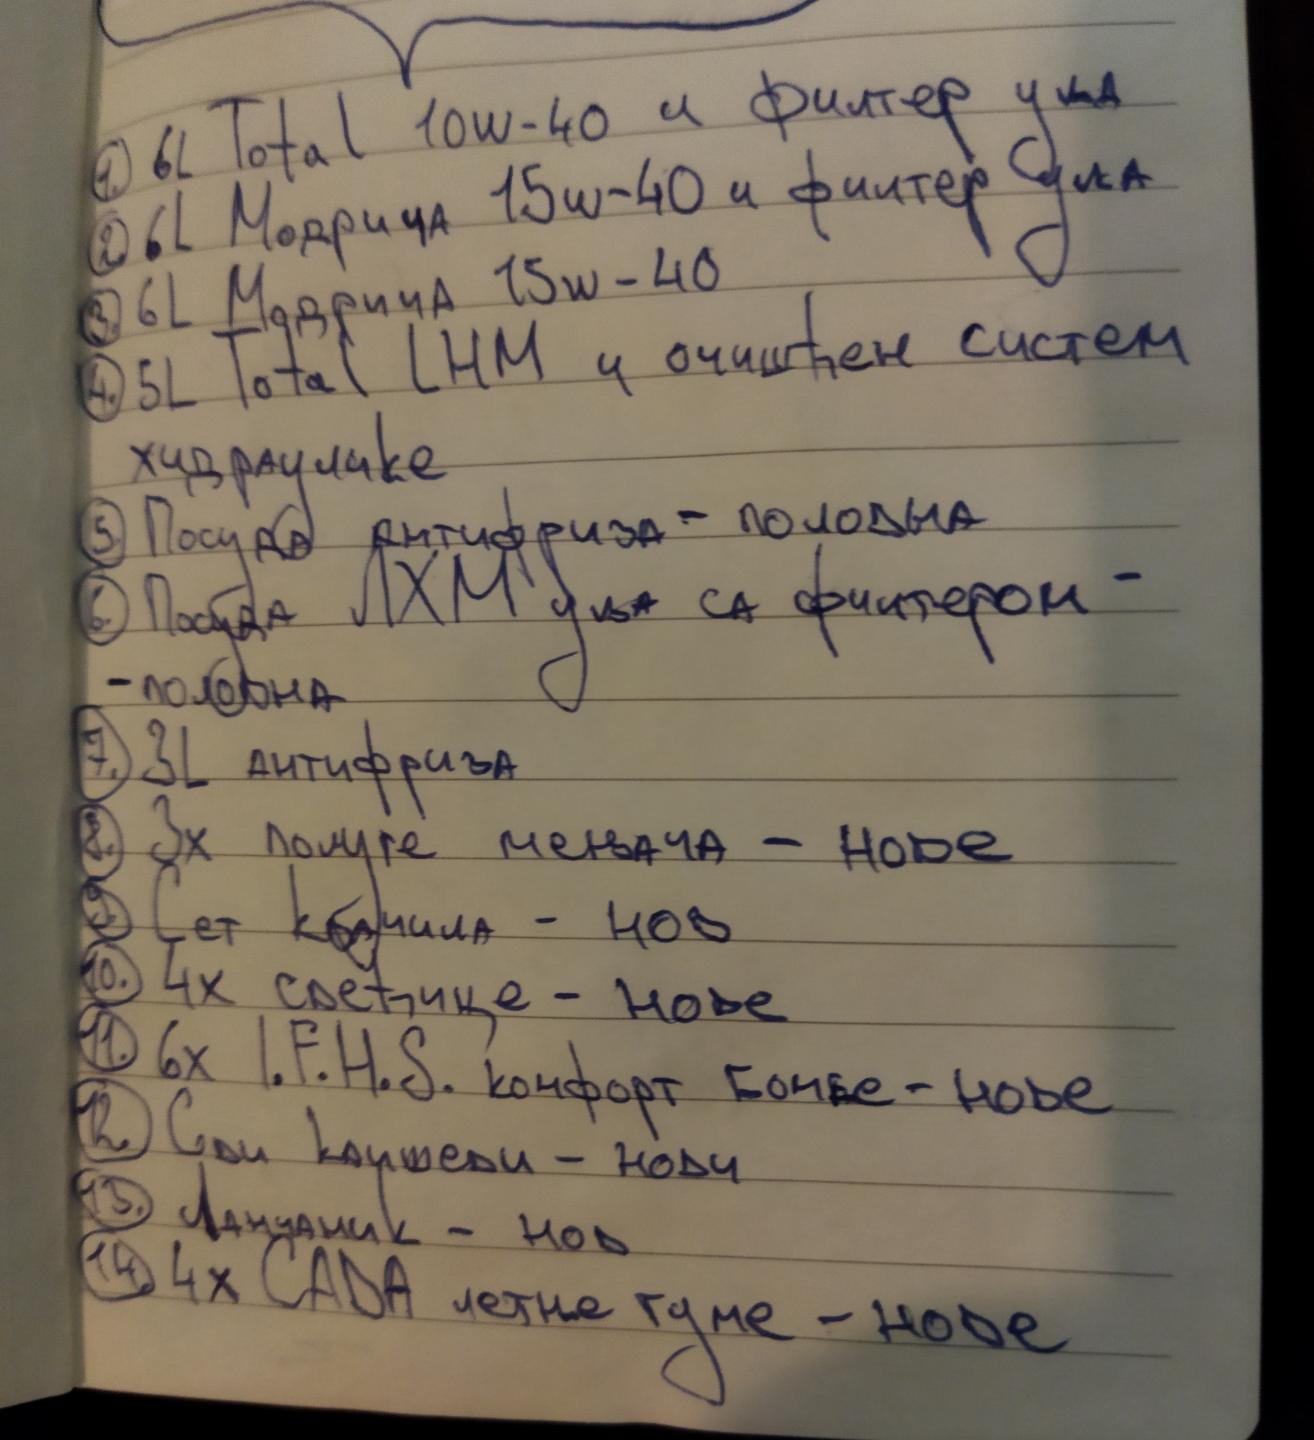 1. 6L Total 10W-40 и филтер уља
2. 6L Модрича 15W-40 и филтер уља
3. 6L Модрича 15W-40
4. 5L Total LHM и очишћен систем
хидраулике
5. Посуда антифриза - половна
6. Посуда ЛХМ уља са филтером -
- половна
7. 3L антифриза
8. 3x полуге мењача - нове
9. Сет квачила - нов
10. 4x свећице - нове
11. 6x I.F.H.S. конфорт бомбе - нове
12. Сви каишеви - нови
13. Ланчаник - нов
14. 4x SADA летне гуме - нове